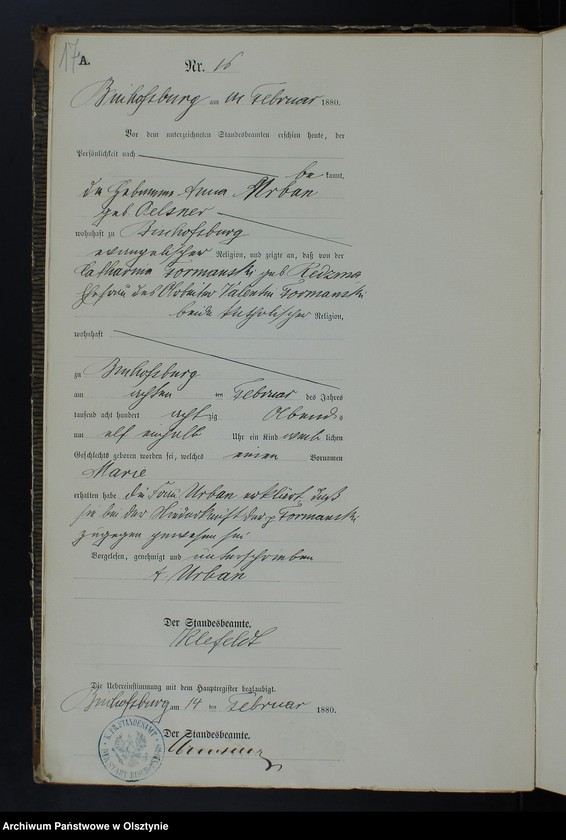 17 A.
Nr. 16
Bischofsburg am 14 Februar 1880.
Vor dem unterzeichneten Standesbeamten erschien heute, der
Persönlichkeit nach
be kannt,
die Hebamme Anna Urban
geb. Oelsner
wohnhaft zu Bischofsburg
evangelischer Religion, und zeigte an, daß von der
Catharina Formanski geb.
Ehefrau des Arbeiter Valentin Formanski
beide katholischer Religion,
wohnhaft
zu Bischofsburg
am achten ten Februar des Jahres
tausend acht hundert acht zig Abends
um elf einhalb Uhr ein Kind weib lichen
Geschlechts geboren worden sei, welches einen Vornamen
Marie
erhalten habe die Frau Urban erklärt daß
sie bei der Niederkunft der p Formanski
zugegen gewesen sei
Vorgelesen, genehmigt und unterschrieben
Urban
Der Standesbeamte.
Klefeldt
Die Uebereinstimmung mit dem Hauptregister beglaubigt.
Bischofsburg am 14 ten Februar 1880.
Der Standesbeamte.
K. PR. STANDESAMT
Archiwum Państwowe w Olsztynie